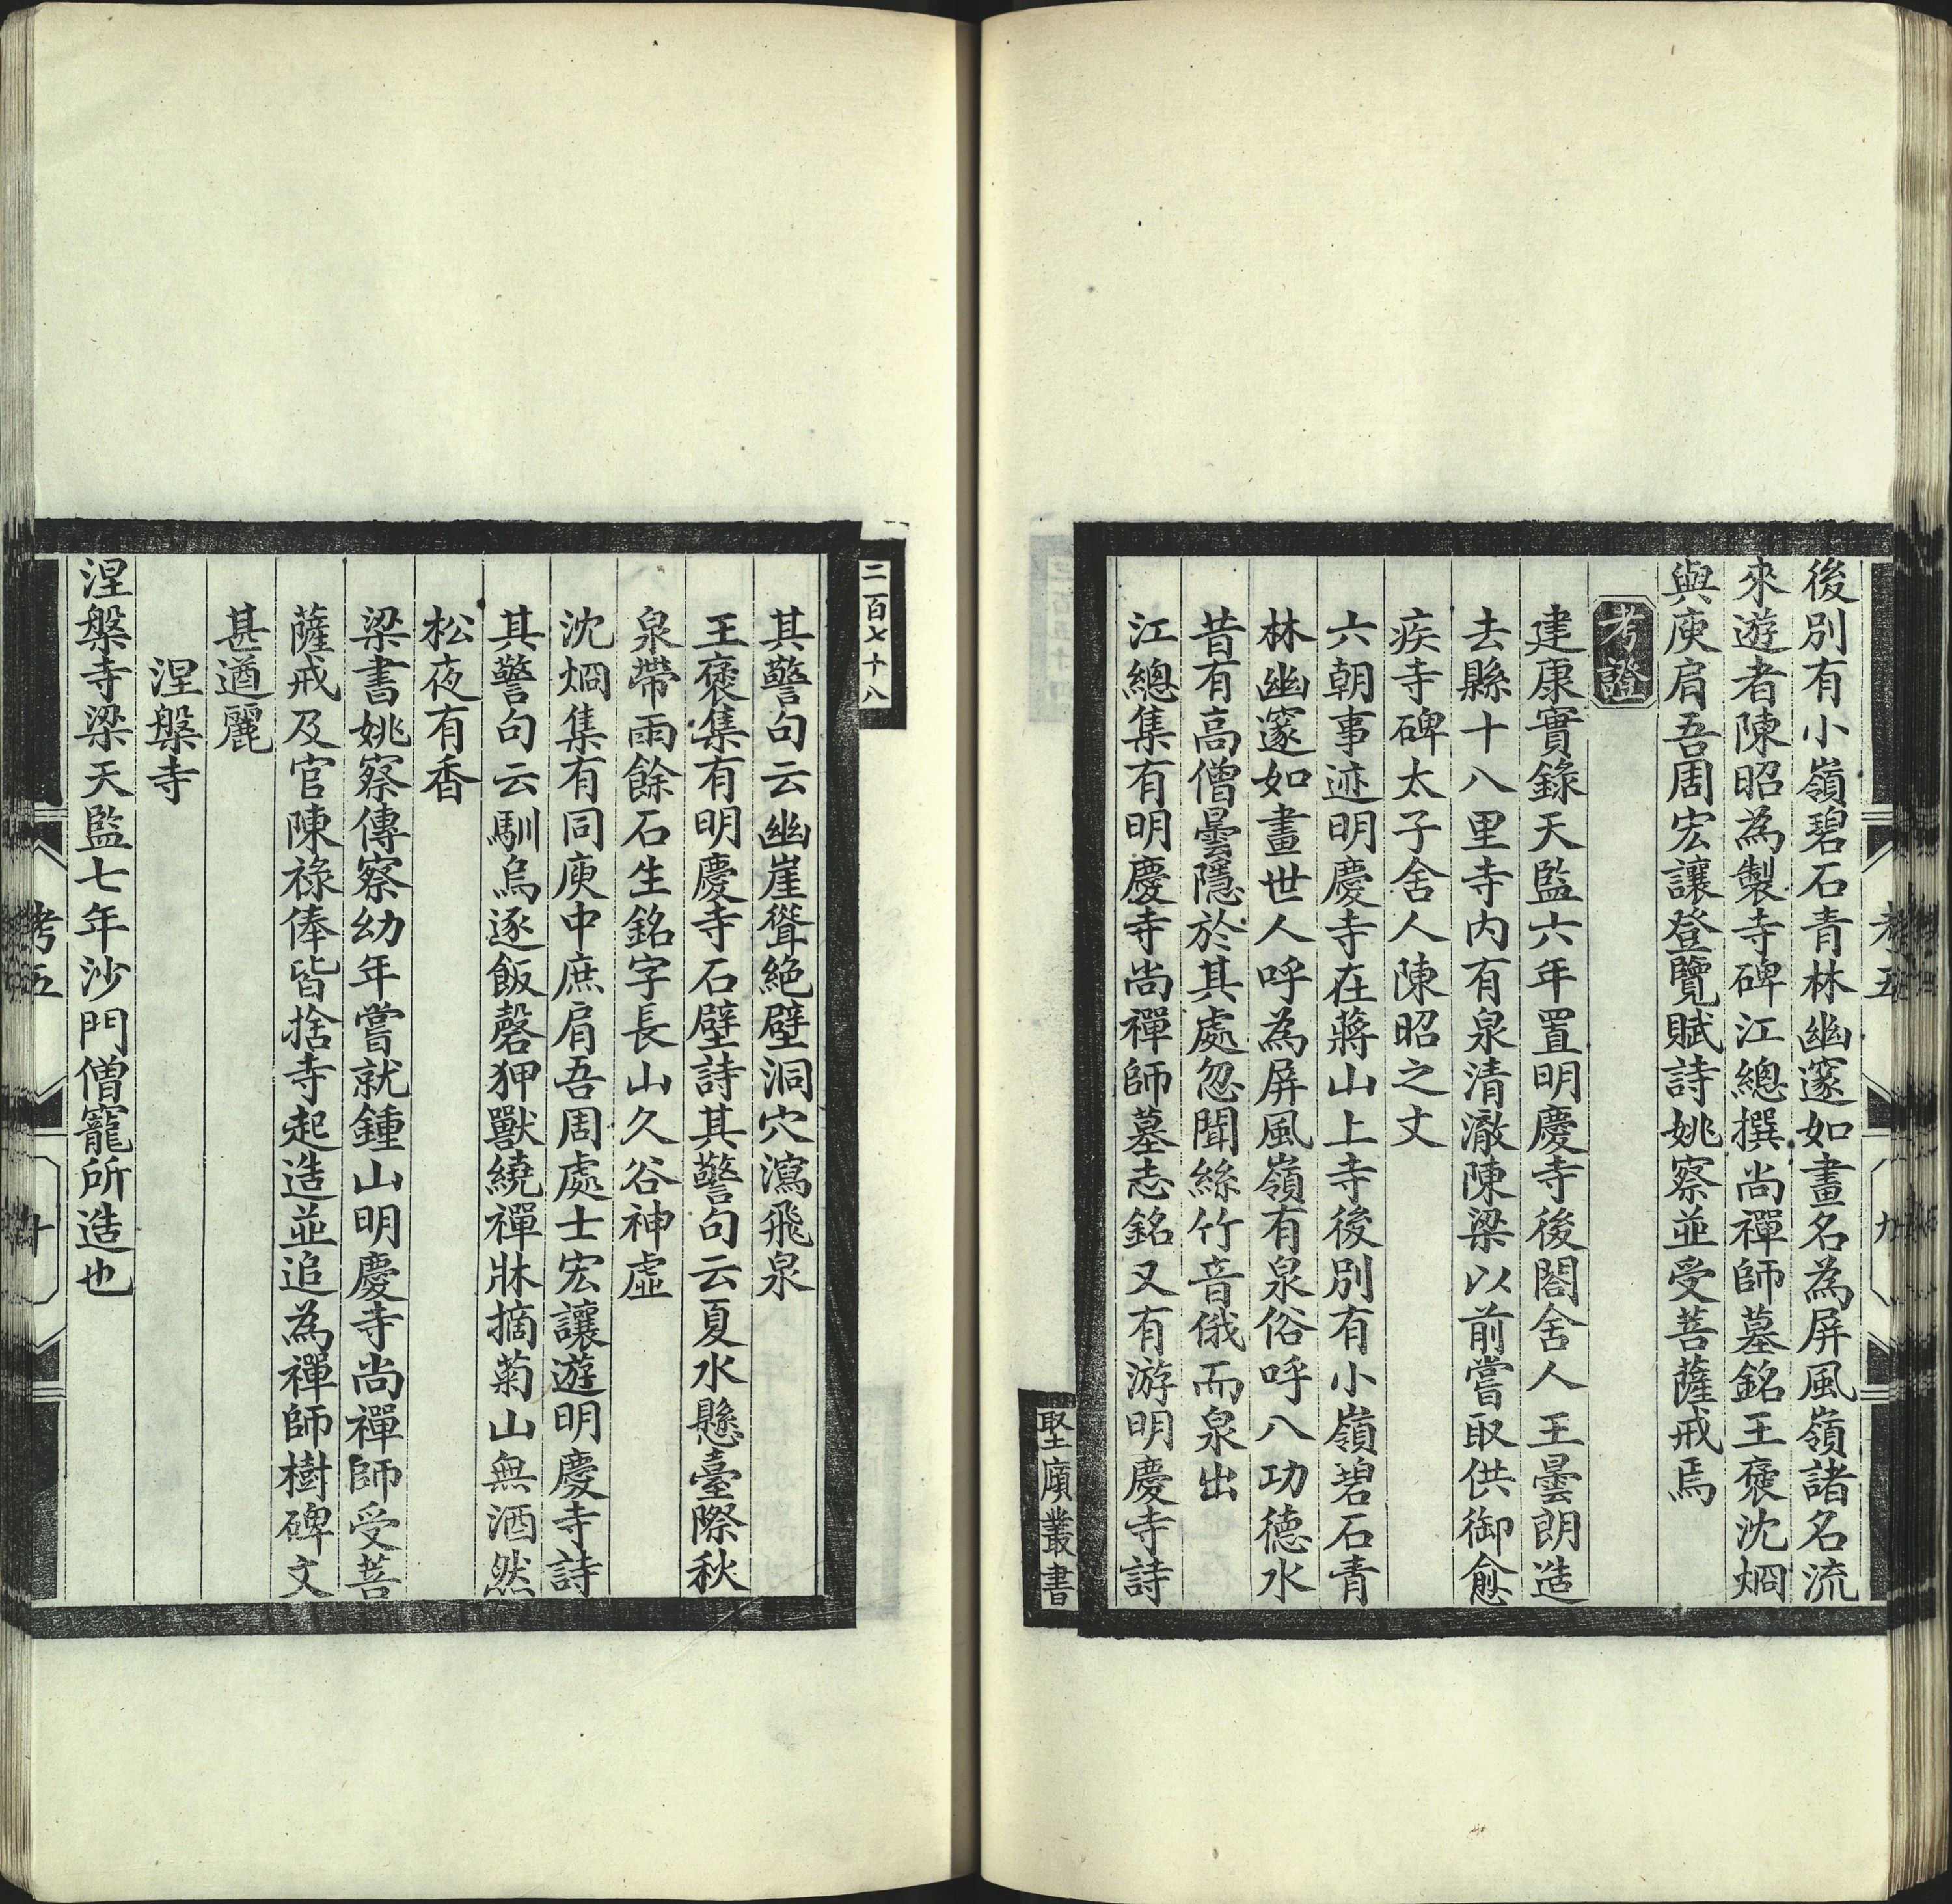 考五
九
後別有小嶺碧石青林幽邃如畫名為屏風嶺諸名流
來遊者陳昭為製寺碑江總撰尚禪師墓銘王褒沈烱
與庾肩吾周宏讓登覽賦詩姚察並受菩薩戒焉
考證
建康實錄天監六年置明慶寺後閣舍人王曇朗造
去縣十八里寺内有泉清澈陳梁以前嘗取供御愈
疾寺碑太子舍人陳昭之文
六朝事迹明慶寺在蔣山上寺後別有小嶺碧石青
林幽邃如畫世人呼為屏風嶺有泉俗呼八功德水
昔有高僧曇隱於其處忽聞絲竹音俄而泉出
江總集有明慶寺尚禪師墓志銘又有游明慶寺詩
聖廎叢書
二百七十八
其警句云幽崖聳絕壁洞穴瀉飛泉
王褒集有明慶寺石壁詩其警句云夏水懸臺際秋
泉帶雨餘石生銘字長山久谷神虛
沈烱集有同庾中庶肩吾周處士宏讓遊明慶寺詩
其警句云馴烏逐飯磬狎獸繞禪牀摘菊山無酒然
松夜有香
梁書姚察傳察幼年嘗就鍾山明慶寺尚禪師受菩
薩戒及官陳祿俸皆捨寺起造並追為禪師樹碑文
甚遒麗
涅槃寺
涅槃寺梁天監七年沙門僧寵所造也
考五
十